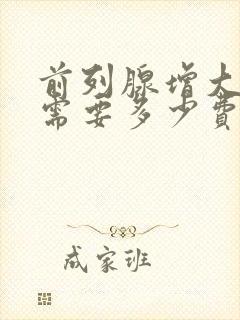 前列腺增大
需要多少费
成家班